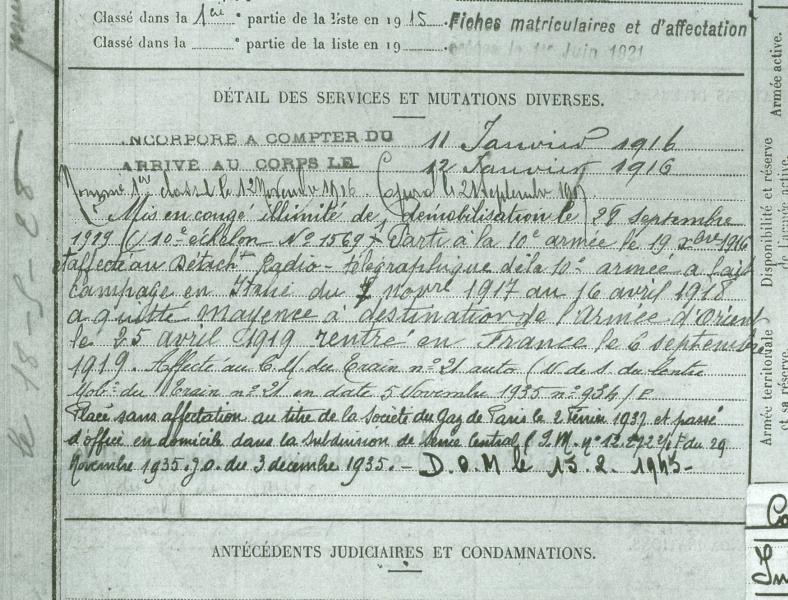 Classé dans la 1ère partie de la liste en 1915
Fiches matriculaires et d'affectation
Classé dans la partie de la liste en 19
le 1er Juin 1921
DÉTAIL DES SERVICES ET MUTATIONS DIVERSES.
INCORPORÉ A COMPTER DU 11 Janvier 1916
ARRIVÉ AU CORPS LE 12 Janvier 1916
Nommé 1ère classe le 12 Novembre 1916. Caporal le 21 septembre
Mis en congé illimité de démobilisation le 28 septembre
1919 (10e échelon No 1569 Parti à la 10e armée le 19 xbre 1916
et affecté au Détacht Radio-télégraphique de la 10e armée a fait
campagne en Italie du 7 novre 1917 au 16 avril 1918
a quitté Mayence à destination de l'Armée d'Orient
le 25 avril 1919 rentré en France le 6 septembre
1919. Affecté au C.M. du Train no 21 auto (V. de s. du Centre
Mobon du Train no 21 en date 5 Novembre 1935 no 934/P
Placé sans affectation au titre de la Société du Gaz de Paris le 2 Février 1937 et passé
d'office en domicile dans la subdivision de Seine Central (I.M. no 12.272 du 29
Novembre 1935. J.O. du 3 décembre 1935. - D.O.M le 15.2.1945-
ANTÉCÉDENTS JUDICIAIRES ET CONDAMNATIONS.
le 18-5-28
Armée active.
Disponibilité et réserve
de l'armée active.
Armée territoriale
et sa réserve.